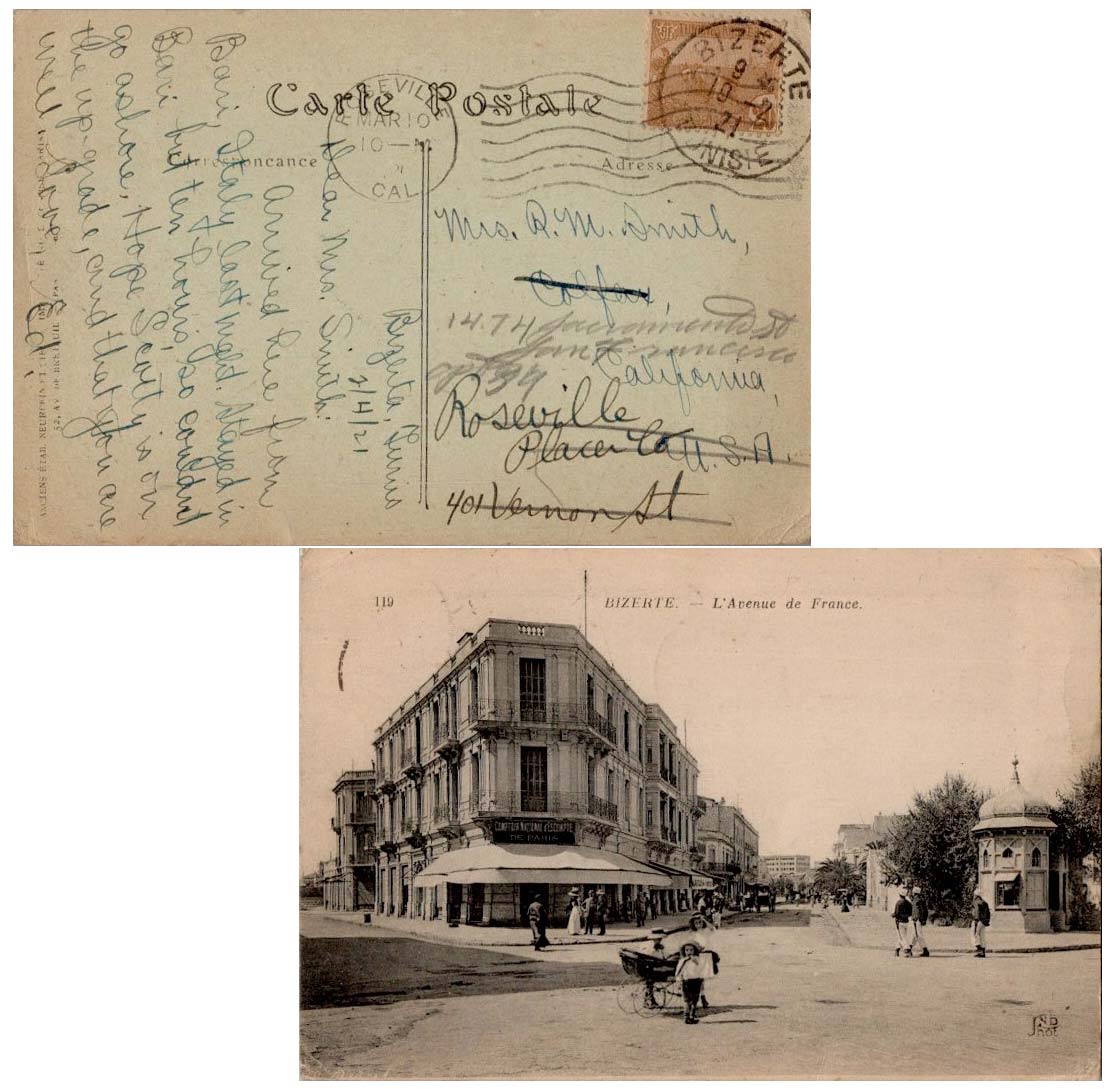 Carte Postale
Correspondance
Adresse
BIZERTE
9 *
19 - 2
21
TUNISIE
ROSEVILLE
MAR 10
10 — M
CAL
Bizerta, Tunis
2/4/21
Dear Mrs. Smith:
Arrived here from
Bari, Italy last night. Stayed in
Bari but ten hours, so couldn't
go ashore, Hope Scotty is on
the up-grade, and that you are
well
Mrs. R. M. Smith,
Colfax,
1474 Sacramento St
San Francisco
California,
Roseville
Placer Co
U.S.A.
401 Vernon St
ANCIENS ÉTAB. NEURDEIN ET CIE
52, AV. DE BRETEUIL
119
BIZERTE. — L'Avenue de France.
COMPTOIR NATIONAL D'ESCOMPTE
DE PARIS
ND
Phot